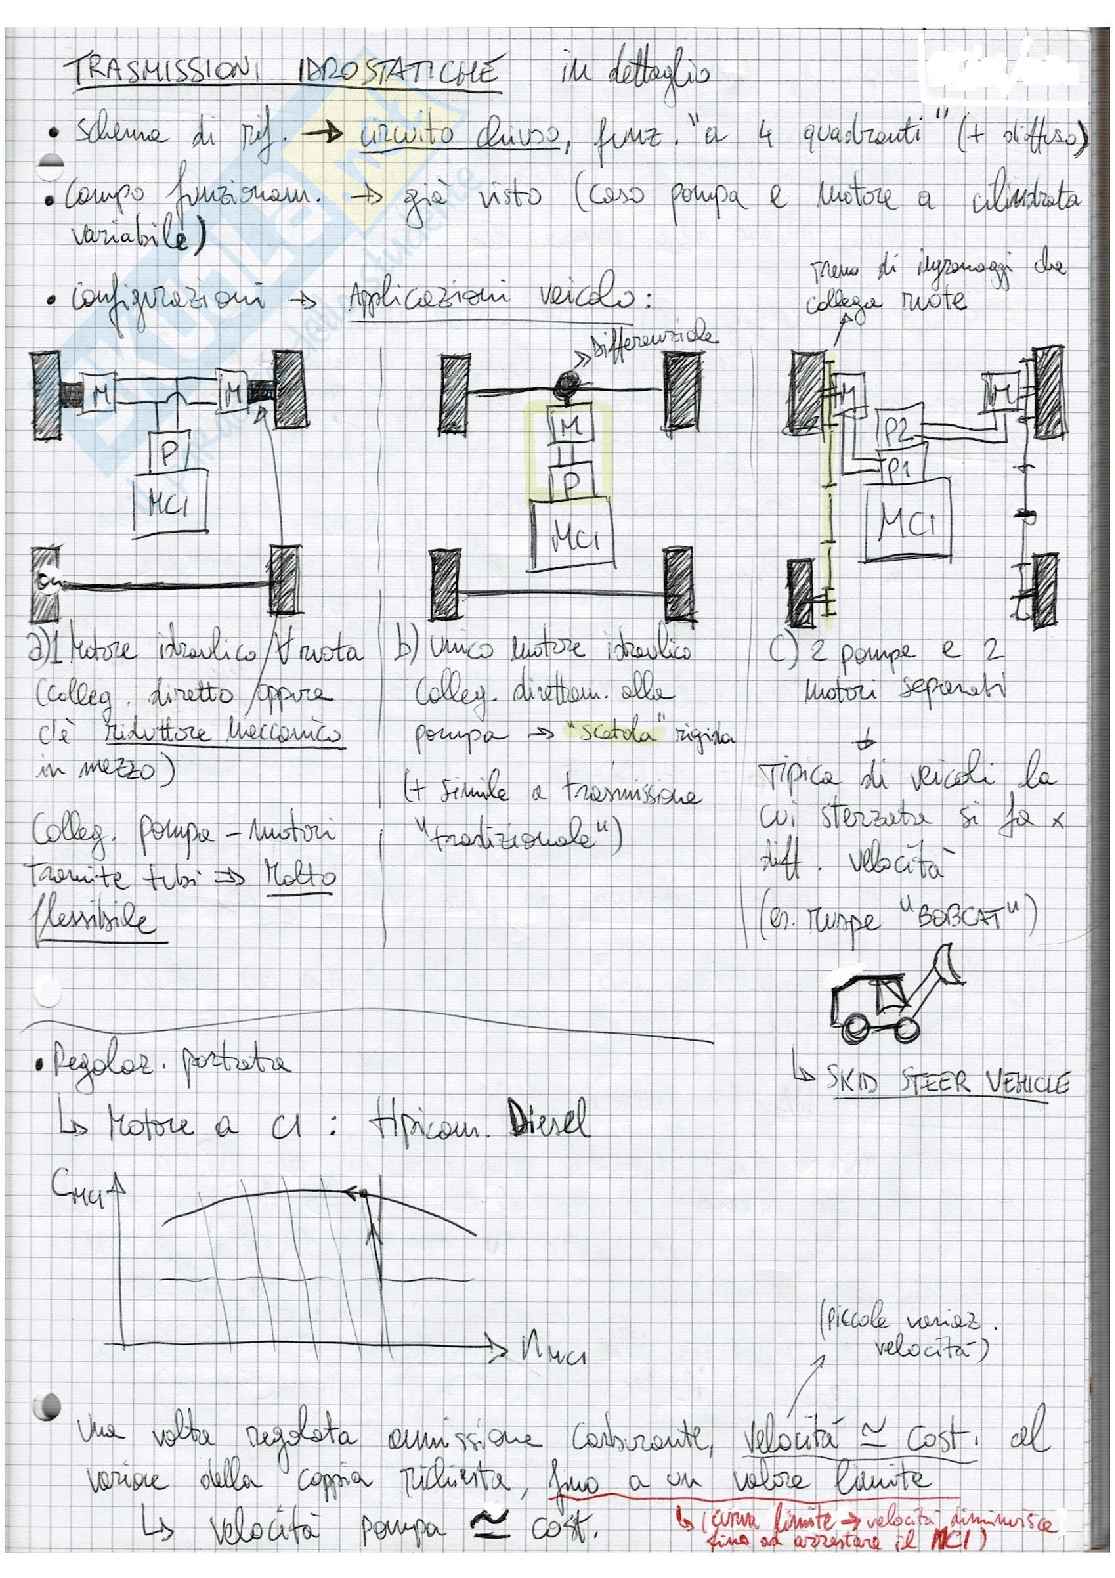 TRASMISSIONI IDROSTATICHE in dettaglio
• Schema di rif. → circuito chiuso, funz. "a 4 quadranti" (+ diffuso)
• Campo funzionam. → già visto (caso pompa e motore a cilindrata
variabile)
• Configurazioni → Applicazioni veicolo:
treno di ingranaggi che
collega ruote
Differenziale
M M
P
MCI
M
P
MCI
M M
P2
P1
MCI
a) 1 Motore idraulico / ∀ ruota
(colleg. diretto oppure
c'è riduttore meccanico
in mezzo)
Colleg. pompa - motori
tramite tubi ⇒ Molto
flessibile
b) Unico motore idraulico
colleg. direttam. alla
pompa → "scatola" rigida
(+ simile a trasmissione
"tradizionale")
c) 2 pompe e 2
motori separati
↓
Tipica di veicoli la
cui sterzata si fa x
diff. velocità
(es. ruspe "BOBCAT")
↳ SKID STEER VEHICLE
• Regolaz. portata
↳ Motore a CI : tipicam. Diesel
CMCI
nMCI
(piccole variaz.
velocità)
Una volta regolata ammissione carburante, velocità ≃ cost. al
variare della coppia richiesta, fino a un valore limite
↳ velocità pompa ≃ cost.
↳ (curva limite → velocità diminuisce
fino ad arrestare il MCI)